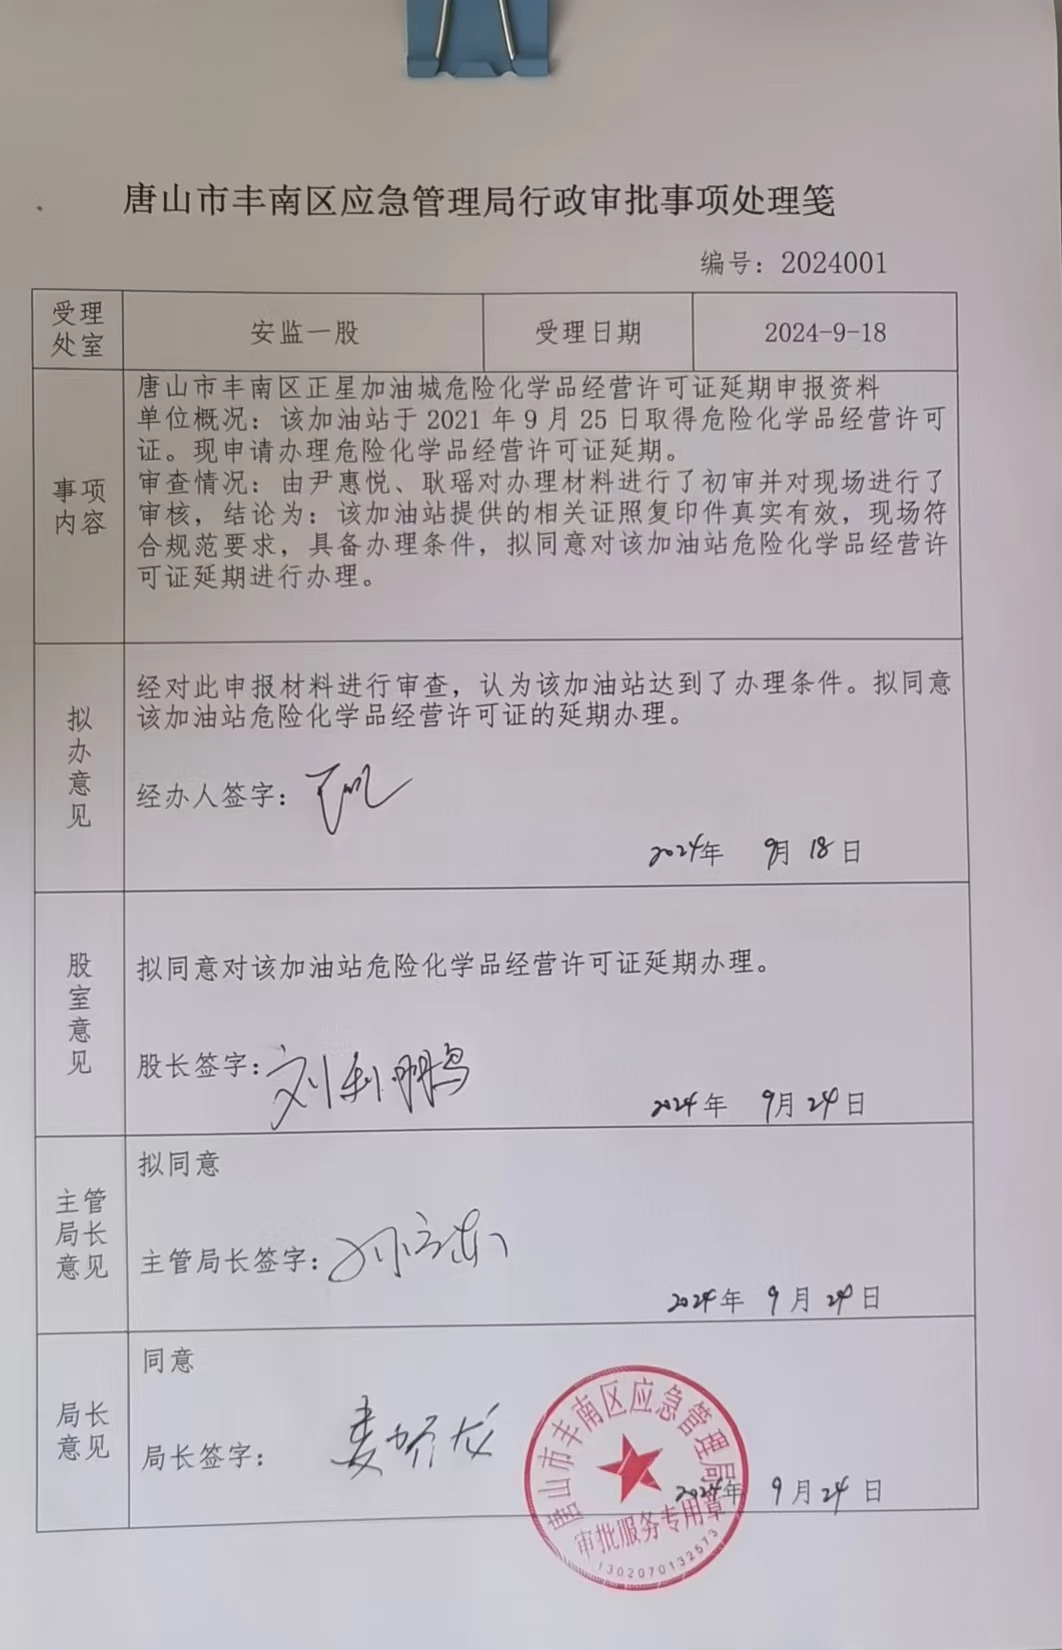 唐山市丰南区应急管理局行政审批事项处理笺
编号：2024001
受理
处室
安监一股
受理日期
2024-9-18
事项
内容
唐山市丰南区正星加油城危险化学品经营许可证延期申报资料
单位概况：该加油站于 2021 年 9 月 25 日取得危险化学品经营许可
证。现申请办理危险化学品经营许可证延期。
审查情况：由尹惠悦、耿瑶对办理材料进行了初审并对现场进行了
审核，结论为：该加油站提供的相关证照复印件真实有效，现场符
合规范要求，具备办理条件，拟同意对该加油站危险化学品经营许
可证延期进行办理。
拟
办
意
见
经对此申报材料进行审查，认为该加油站达到了办理条件。拟同意
该加油站危险化学品经营许可证的延期办理。
经办人签字：
2024年 9月 18日
股
室
意
见
拟同意对该加油站危险化学品经营许可证延期办理。
股长签字：刘利鹏
2024年 9月 24日
主管
局长
意见
拟同意
主管局长签字：
2024年 9月 24日
局长
意见
同意
局长签字：
2024年 9月 24日
唐山市丰南区应急管理局
审批服务专用章
1302070132513